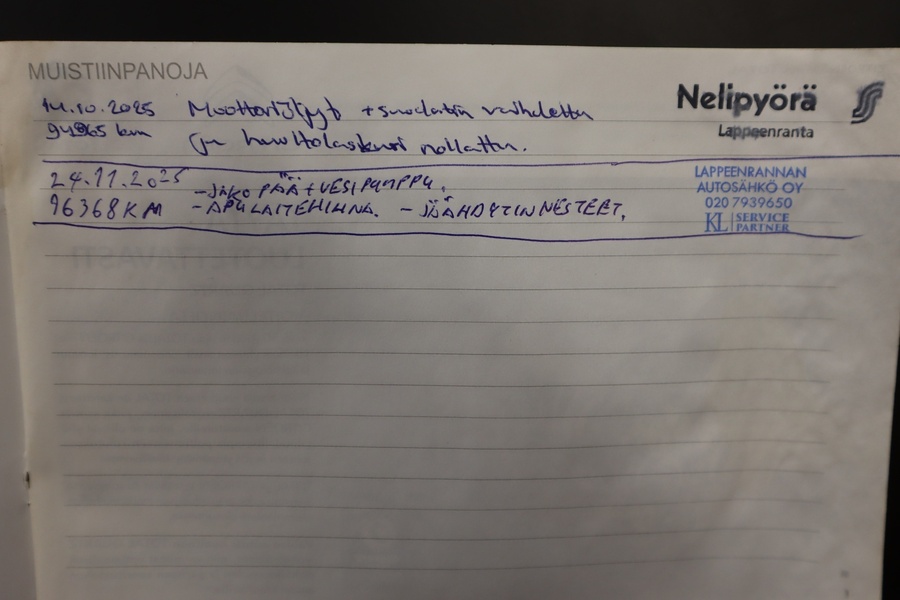 MUISTIINPANOJA
14.10.2025 Moottoriöljyt + suodatin vaihdettu
km ja huoltolaskuri nollattu.
Nelipyörä
Lappeenranta
24.11.2025 - JAKOPÄÄ + VESIPUMPPU.
96368 KM - APULAITEHIHNA. - JÄÄHDYTINNESTEET.
LAPPEENRANNAN
AUTOSÄHKÖ OY
020 7939650
KL SERVICE
PARTNER